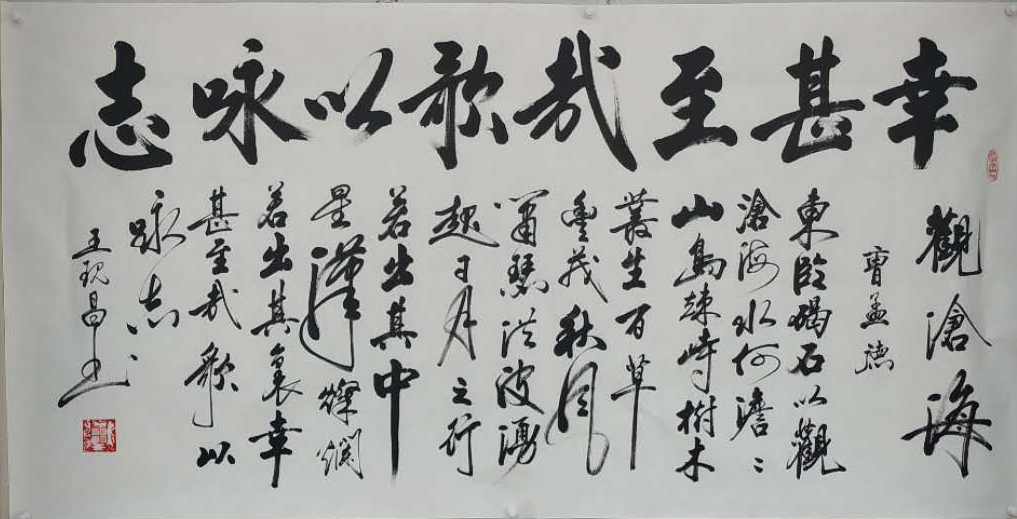 幸甚至哉歌以咏志
觀滄海
曹孟德
東臨碣石以觀
滄海水何澹〻
山島竦峙樹木
叢生百草
豐茂秋風
蕭瑟洪波湧
起日月之行
若出其中
星漢燦爛
若出其裏幸
甚至哉歌以
咏志
王現昌书